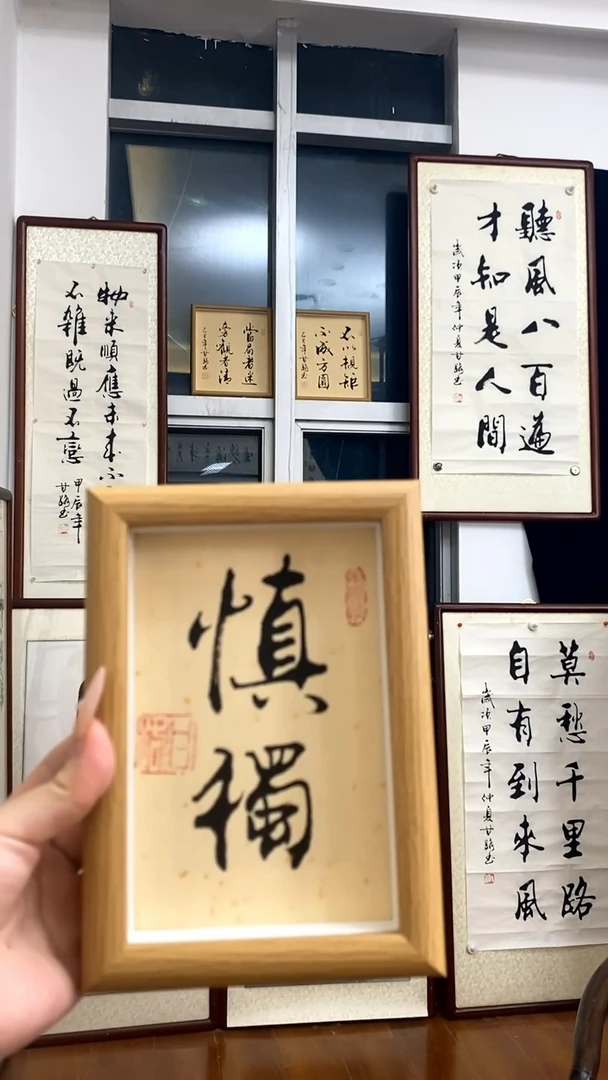 慎獨
聽風八百遍
才知是人間
歲次甲辰年仲夏甘駱書
物来順應未来不
不雜既過不戀
甲辰年
甘駱書
當局者迷
旁觀者清
不以規矩
不成方圓
莫愁千里路
自有到來風
歲次甲辰年仲夏甘駱書